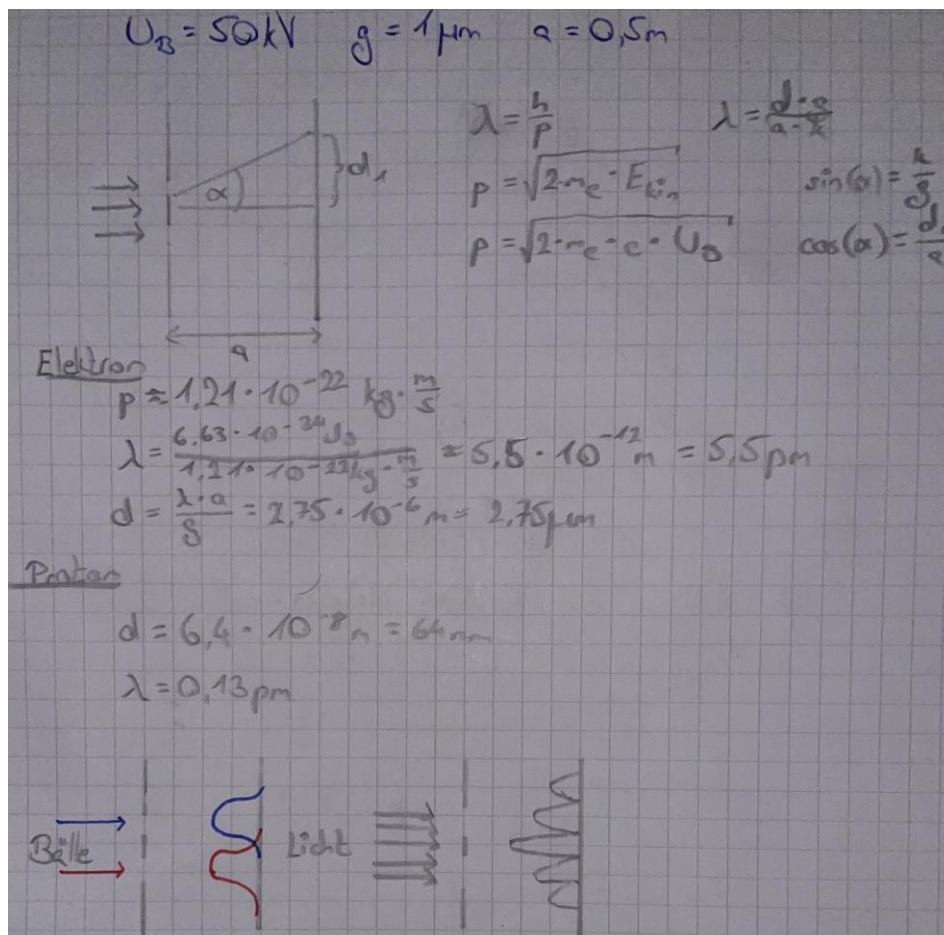 U_B = 50kV g = 1 μm a = 0,5m
λ = h/p λ = d·g/a·k
α d₁ p = √2·m_e·E_kin sin(α) = k/g
p = √2·m_e·e·U_B cos(α) = d₁/a
a
Elektron
p ≈ 1,21·10⁻²² kg·m/s
λ = 6,63·10⁻³⁴Js / 1,21·10⁻²²kg·m/s ≈ 5,5·10⁻¹²m = 5,5pm
d = λ·a/g = 2,75·10⁻⁶m = 2,75μm
Proton
d = 6,4·10⁻⁸m = 64nm
λ = 0,13pm
Bälle Licht